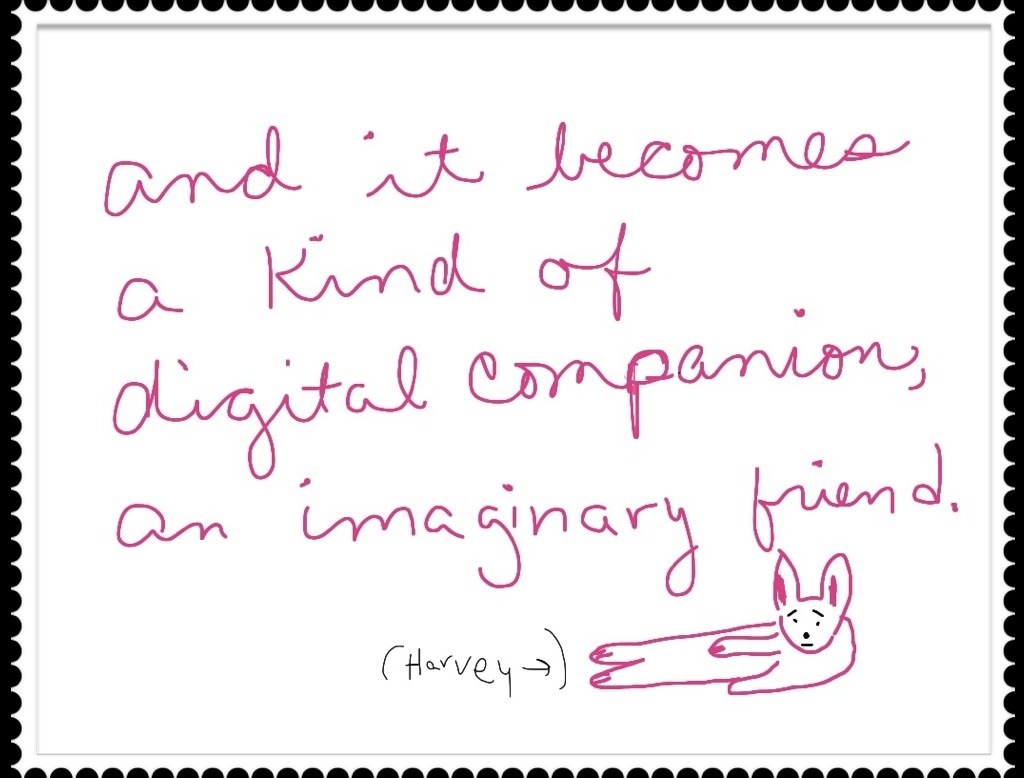 and it becomes
a kind of
digital companion,
an imaginary friend.
(Harvey →)